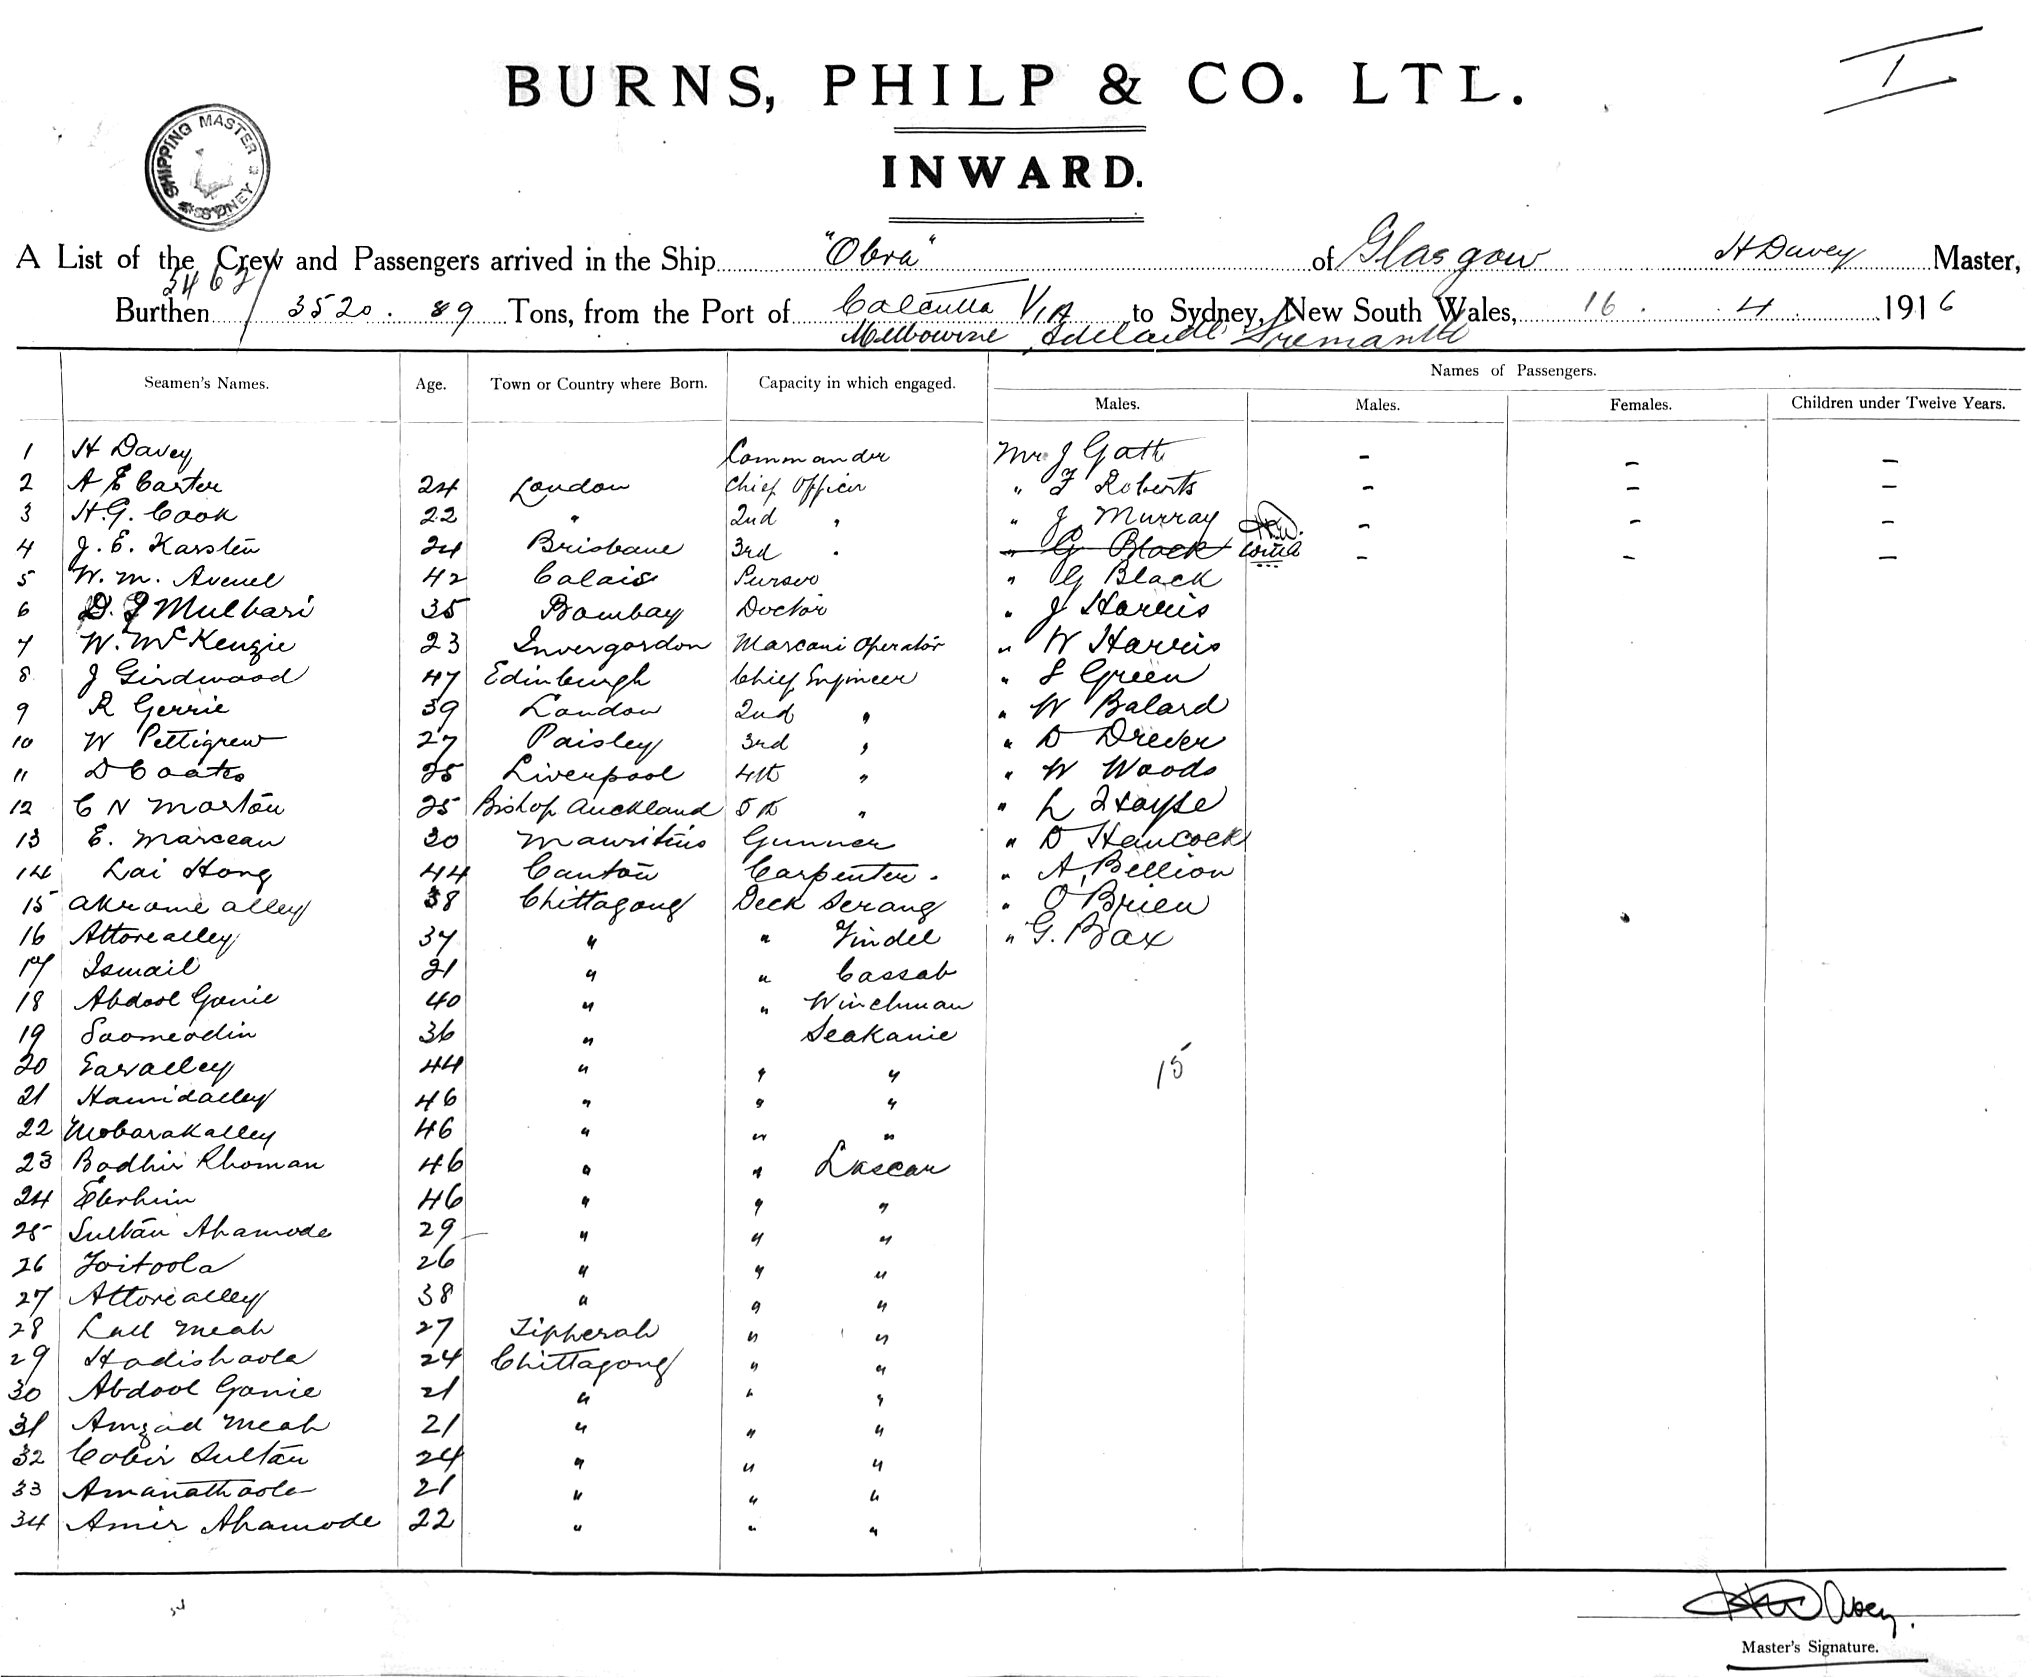 I
BURNS, PHILP & CO. LTL.
SHIPPING MASTER SYDNEY
INWARD.
A List of the Crew and Passengers arrived in the Ship "Obra" of Glasgow H Davey Master,
5462
Burthen 3520 . 89 Tons, from the Port of Calcutta VIA to Sydney, New South Wales, 16 . 4 . 1916
Melbourne Adelaide Fremantle
Names of Passengers.
Seamen's Names. Age. Town or Country where Born. Capacity in which engaged. Males. Males. Females. Children under Twelve Years.
1 H Davey Commander Mr J Gath - - -
2 A E Carter 24 London Chief Officer " F Roberts - - -
3 H.G. Cook 22 " 2nd " " J Murray - - -
4 J. E. Karsten 24 Brisbane 3rd " " G Block - - -
5 W. M. Avenel 42 Calais Purser " G Black
6 D. J Mulbari 35 Bombay Doctor " J Harris
7 W. McKenzie 23 Invergordon Marconi Operator " W Harris
8 J Girdwood 47 Edinburgh Chief Engineer " S Green
9 R Gerrie 39 London 2nd " " W Balard
10 W Pettigrew 27 Paisley 3rd " " D Drever
11 D Coates 25 Liverpool 4th " " W Woods
12 C N Morton 25 Bishop Auckland 5th " " L
13 E. Marceau 30 Mauritius Gunner " D Hancock
14 Lai Hong 44 Canton Carpenter. " A. Bellion
15 Akrame alley 38 Chittagong Deck Serang " O'Brien
16 Attorealley 37 " " Tindel " G. Bax
17 Ismail 21 " " Cassab
18 Abdool Gonie 40 " " Winchman
19 Soomeodin 36 " Seakanie
20 Earalley 44 " " "
15
21 Hamidalley 46 " " "
22 Mobarakalley 46 " " "
23 Bodhir Rhoman 46 " " Lascar
24 Ebrhim 46 " " "
25 Sultan Ahamode 29 " " "
26 Foitoola 26 " " "
27 Attorealley 38 " " "
28 Lall Meah 27 Tipperah " "
29 Hodishoola 24 Chittagong " "
30 Abdool Gonie 21 " " "
31 Amzad Meah 21 " " "
32 Cobir Sultan 24 " " "
33 Amanathoola 21 " " "
34 Amir Ahamode 22 " " "
H Davey.
Master's Signature.